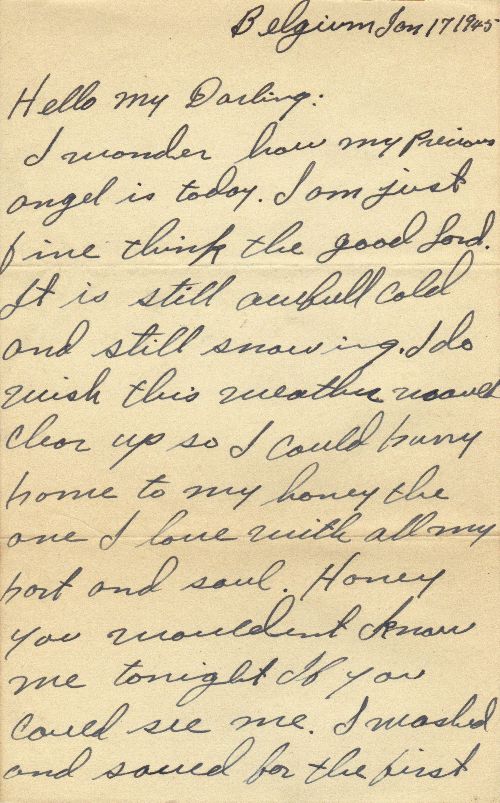 Belgium Jan 17 1945
Hello my Darling:
I wonder how my precious
angel is today. I am just
fine think the good Lord.
It is still awfull cold
and still snowing. I do
wish this weather would
clear up so I could hurry
home to my honey the
one I love with all my
hart and soul. Honey
you wouldent know
me tonight If you
could see me. I washed
and saved for the first